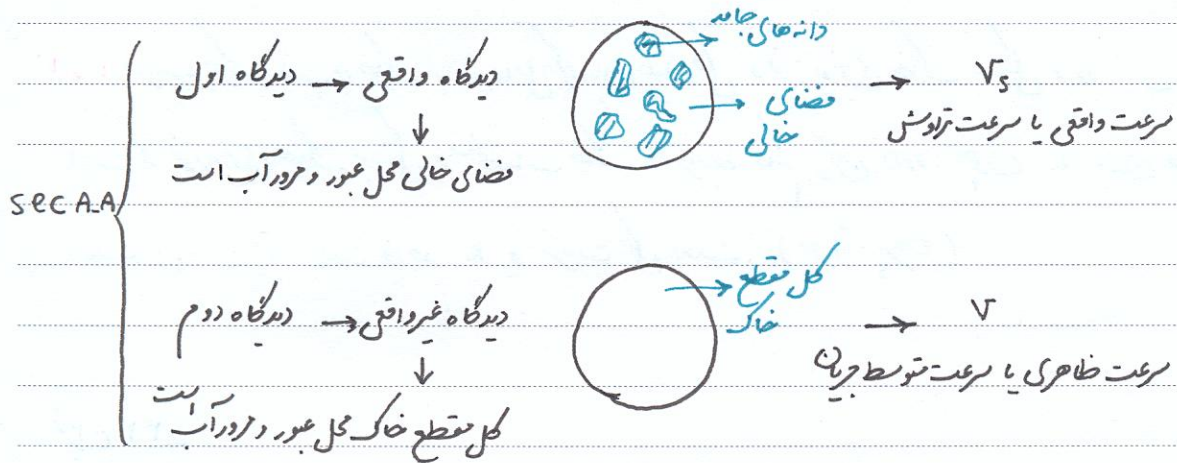 دیدگاه اول → دیدگاه واقعی
↓
فضای خالی محل عبور و مرور آب است
دانه های جامد
فضای
خالی
→ Vs
سرعت واقعی یا سرعت تراوش
sec A-A
دیدگاه دوم → دیدگاه غیر واقعی
↓
کل مقطع خاک محل عبور و مرور آب است
کل مقطع
خاک
→ V
سرعت ظاهری یا سرعت متوسط جریان